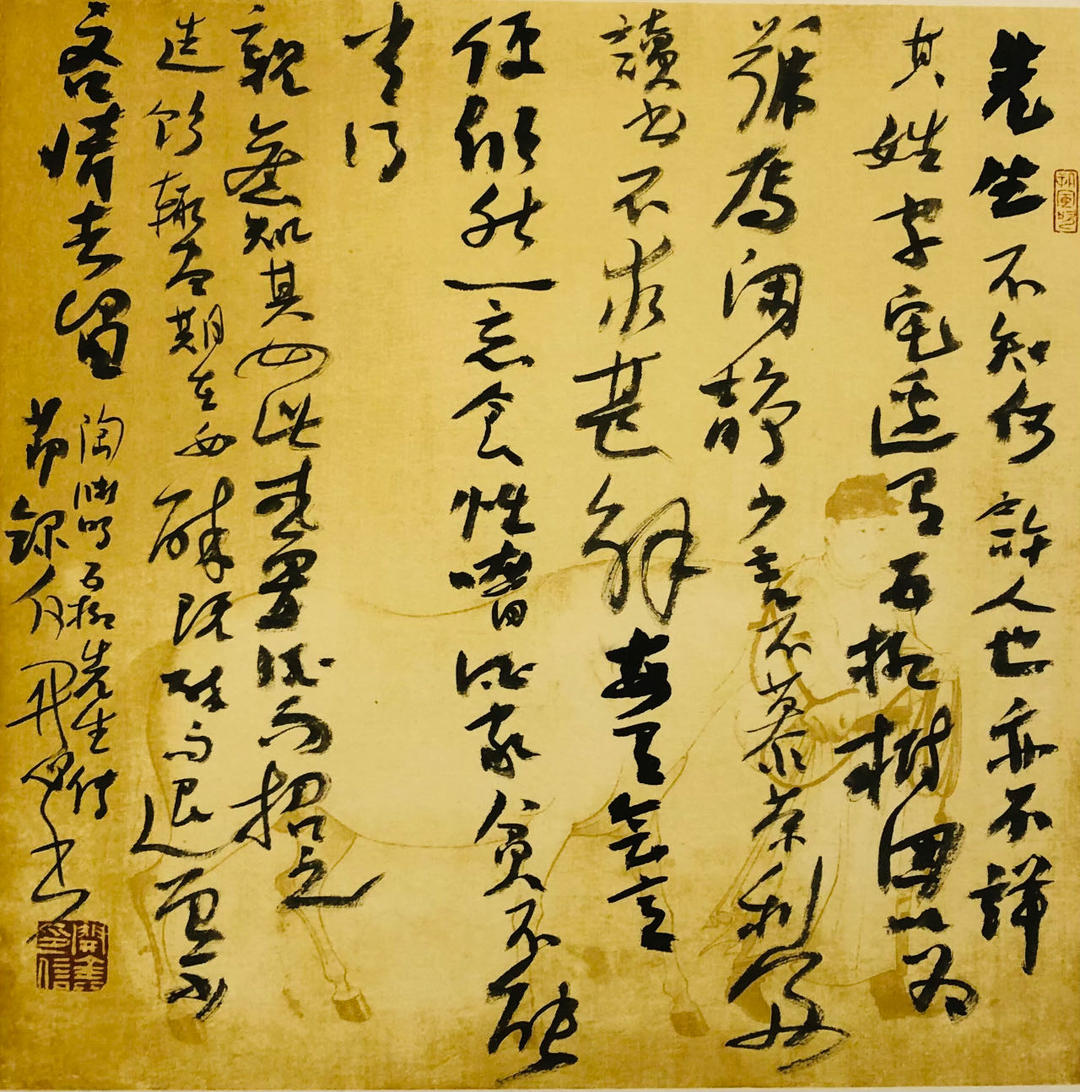 先生不知何許人也亦不詳
其姓字宅邊有五柳樹因以為
號焉閑靜少言不慕榮利好
讀書不求甚解每有會意
便欣然忘食性嗜酒家貧不能
常得
親舊知其如此或置酒而招之
造飲輒盡期在必醉既醉而退曾不
吝情去留
陶淵明五柳先生傳
節錄